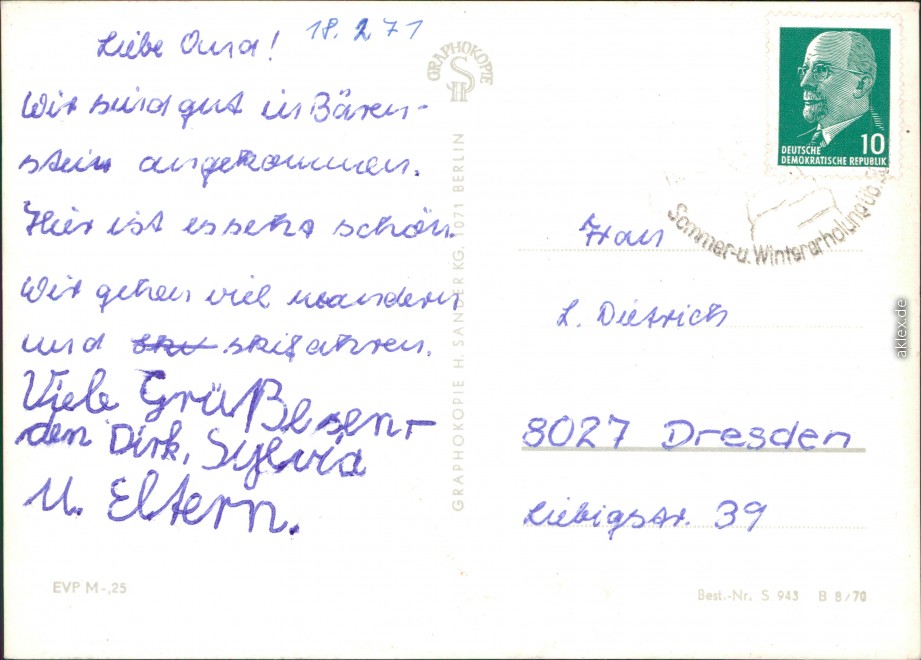 18. 2 71
Liebe Oma!
Wir sind gut in Bären-
stein angekommen.
Hier ist es sehr schön.
Wir gehen viel wandern
und skifahren.
Viele Grüße sen-
den Dirk, Sylvia
u. Eltern.
EVP M -,25
GRAPHOKOPIE
SH
GRAPHOKOPIE H. SANDER KG. 1071 BERLIN
10
DEUTSCHE
DEMOKRATISCHE REPUBLIK
Sommer- u. Wintererholung
Frau
L. Dietrich
8027 Dresden
Liebigstr. 39
Best.-Nr. S 943 B 8/70
aklex.de